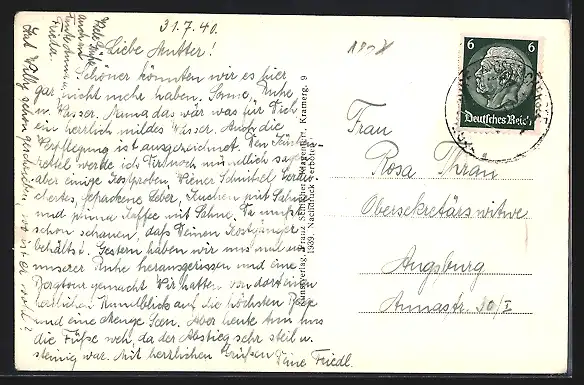 31.7.40.
Liebe Mutter!
Schöner könnten wir es hier
gar nicht mehr haben. Sonne, Ruhe
u. Wasser. Mama das wär was für Dich
ein herrlich mildes Wasser. Auch die
Verpflegung ist ausgezeichnet. Den
werde ich Dir noch mündlich sagen
aber einige Kostproben, Wiener Schnitzel
Leber, Kuchen mit Sahne
und prima Kaffee mit Sahne. Da mußt
schon schauen, daß Deinen Kostgänger
behältst. Gestern haben wir uns mal aus
unserer Ruhe herausgerissen und eine
Bergtour gemacht. Wir hatten von dort einen
herrlichen Rundblick auf die höchsten Berge
und eine Menge Seen. Aber heute tun uns
die Füße weh, da der Abstieg sehr steil u.
steinig war. Mit herzlichen Grüßen
Deine Friedl.
Viele Grüße
auch an
Friedl.
Hat Willy schon geschrieben wo ist er wohl?
Kunstverlag Franz Schilcher, Klagenfurt, Kramerg. 9
1939. Nachdruck verboten
6 6
Deutsches Reich
Frau
Rosa Thrau
Obersekretärswitwe
Augsburg
Annastr. 20/I